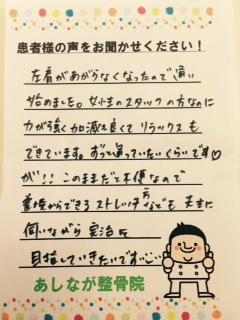 患者様の声をお聞かせください！
左肩があがらなくなったので通い
始めました。女性のスタッフの方なのに
力が強く加減も良くてリラックスも
できています。ずっと通っていたいくらいです♡
が!! このままだと不便なので
普段からできるストレッチ方なども 先生に
伺いながら 完治を
目指していきたいです
あしなが整骨院